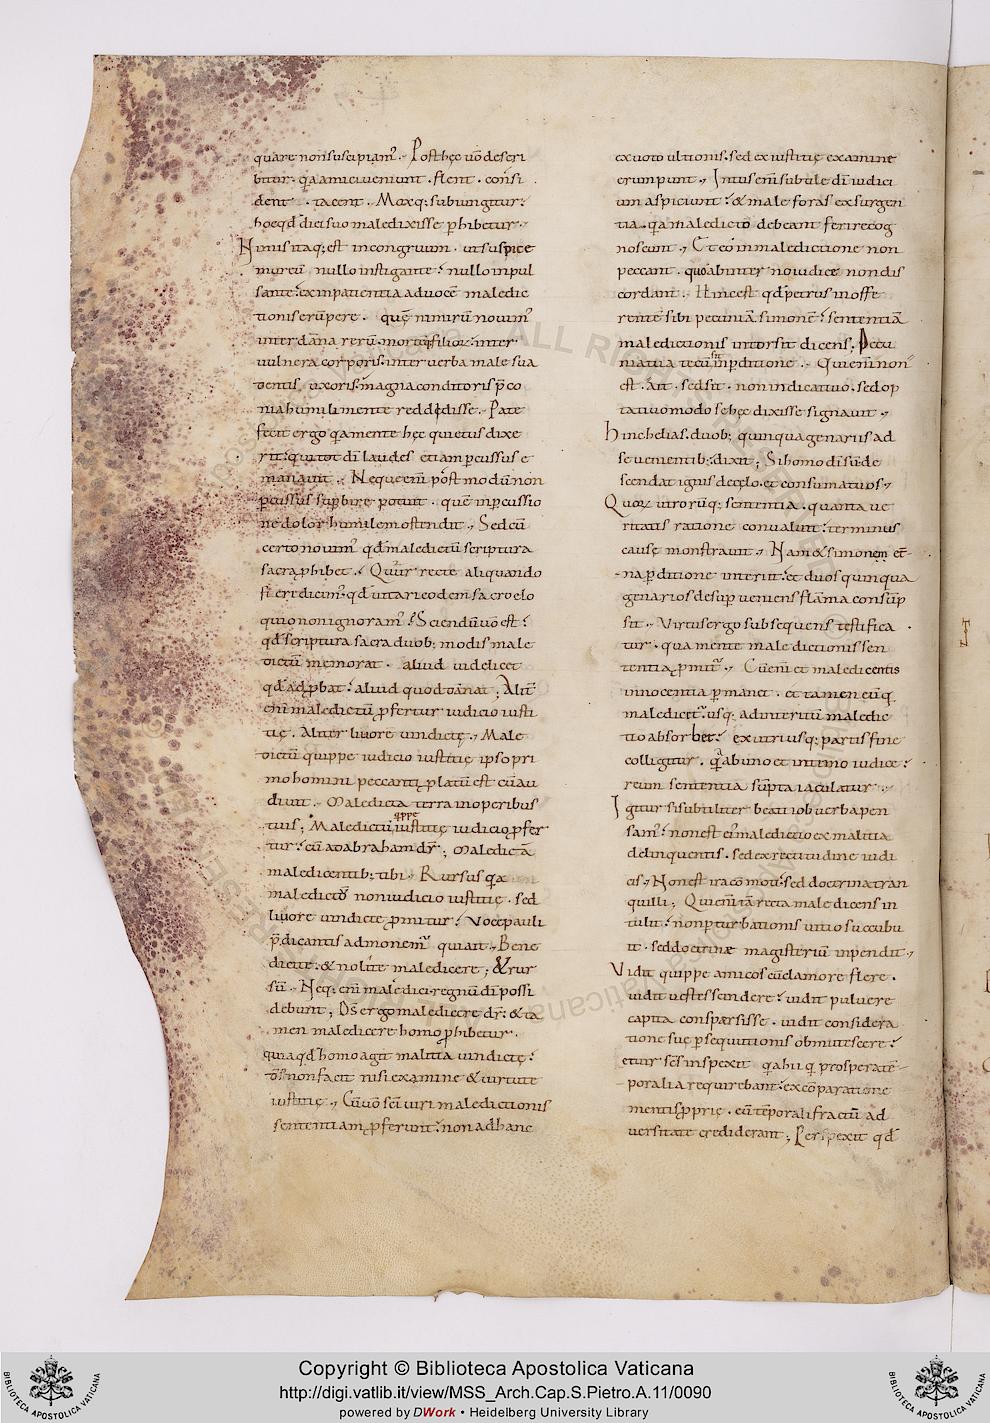 quare non suscipiam᷑. Post hęc u͞o deseri
bitur. q͞a amici ueniunt. flent. consi
dent. tacent. Moxq; subiungitur:
hoc qd̄ diei suo maledixisse ꝓhibetur.
Nimis itaq; est incongruum. ut suspice
mur eū nullo instigante: nullo inpul
sante: ex inpatientia ad uocē maledic
tionis erūpere. quē nimirū nouim᷑
inter dāna rerū. mortesq; filioꝝ: inter
uulnera corporis. inter uerba male sua
dentis uxoris: magna conditori sꝓ̄co
nia humili mente reddidisse. Pate
fecit ergo qa mente hęc quietus dixe
rit: qui tot dī laudes etiam percussus e
manauit. Neque enī post modū non
percussus superbire potuit. quē in percussio
ne dolor humilem ostendit. Sed cū
certo nouim᷑ qd̄ maledictū scriptura
sacra ꝓhibet: Qur̄ recte aliquando
fieri dicim᷑: qd̄ uitari eodem sacro elo
quio non ignoram᷑? Sciendū uo est:
qd̄ scriptura sacra duob; modis male
dictū memorat. aliud uidelicet
qd̄ adꝓbat: aliud quod dānat; Alit͞
enī maledictū ꝓfertur iudicio iusti
tię. Aliter liuore uindictę. Male
dictū quippe iudicio iustitię ipso pri
mo homini peccanti ꝓlatū est cū au
diuit. Maledicta terra in operibus
tuis; Maledictū qppe iustitię iudicio ꝓfer
tur: cū ad abraham dr̄; Maledicā
maledicentib; tibi. Rursus qa
maledictū non iudicio iustitię. sed
liuore uindicte ꝓmitur: Uoce pauli
p̄dicantis admonem᷑ qui ait. Bene
dicite: & nolite maledicere; & rur
sū. Neq; enī maledici regnū dī possi
debunt; Ds̄ ergo maledicere dr̄: & ta
men maledicere homo ꝓhibetur.
quia qd̄ homo agit malitia uindictę:
ds̄ non facit nisi examine & uirtute
iustitię. Cū uo sc̄i uiri maledictionis
sententiam ꝓferunt: non ad hanc
ex uoto ultionis. sed ex iustitię examine
erumpunt. Intus enī subtile dī iudici
um aspiciunt: & mala foras exsurgen
tia. qa maledicto debeant ferire cog
noscunt. Et eo in maledictione non
peccant. quo ab interno iudice non dis
cordant. Hinc est qd̄ petrus in offe
rentē sibi pecuniā simonē: sententiā
maledictionis intorsit dicens; Pecu
nia tua tecū sit in perditione. Qui enī non
est. ait. sed sit. non indicatiuo. sed op
tatiuo modo se hęc dixisse signauit.
Hinc helias. duob; quinquagenariis ad
se uenientib; dixit; Si homo dī sū de
scendat ignis de cęlo. et consumat uos.
Quoꝝ utrorūq; sententia. quanta ue
ritatis ratione conualuit: terminus
causę monstrauit. Nam & simon ęter
na perditione interiit: et duos quinqua
genarios desuper ueniens flāma consūp
sit. Uirtus ergo subsequens testifica
tur. qua mente maledictionis sen
tentia ꝓmit᷑. Cū enī et maledicentis
innocentia permanet. et tamen eū q̇
maledicit᷑. usq; ad interitū maledic
tio absorbet: ex utriusq; partis fine
colligitur. qa ab uno et intimo iudice:
reum sententia sūpta iaculatur.
Igitur si subtiliter beati iob uerba pen
sam᷑: non est ei᷑ maledictio ex malitia
delinquentis. sed ex rectitudine iudi
cis. Non est ira cōmoti: sed doctrina tran
quilli; Qui enī tā recta maledicens in
tulit: non perturbationis uitio succubu
it. sed doctrinae magisteriū inpendit.
Vidit quippe amicos cū clamore flere.
uidit uestes scindere: uidit puluere
capita consparsisse. uidit considera
tione suę persequutionis obmutescere:
et uir sc̄s inspexit qa hii qi prospera tē
poralia requirebant: ex cōparatione
mentis ꝓprię. eū tēporali fractū ad
uersitate crediderant; Perspexit qd̄
Copyright © Biblioteca Apostolica Vaticana
http://digi.vatlib.it/view/MSS_Arch.Cap.S.Pietro.A.11/0090
powered by DWork • Heidelberg University Library